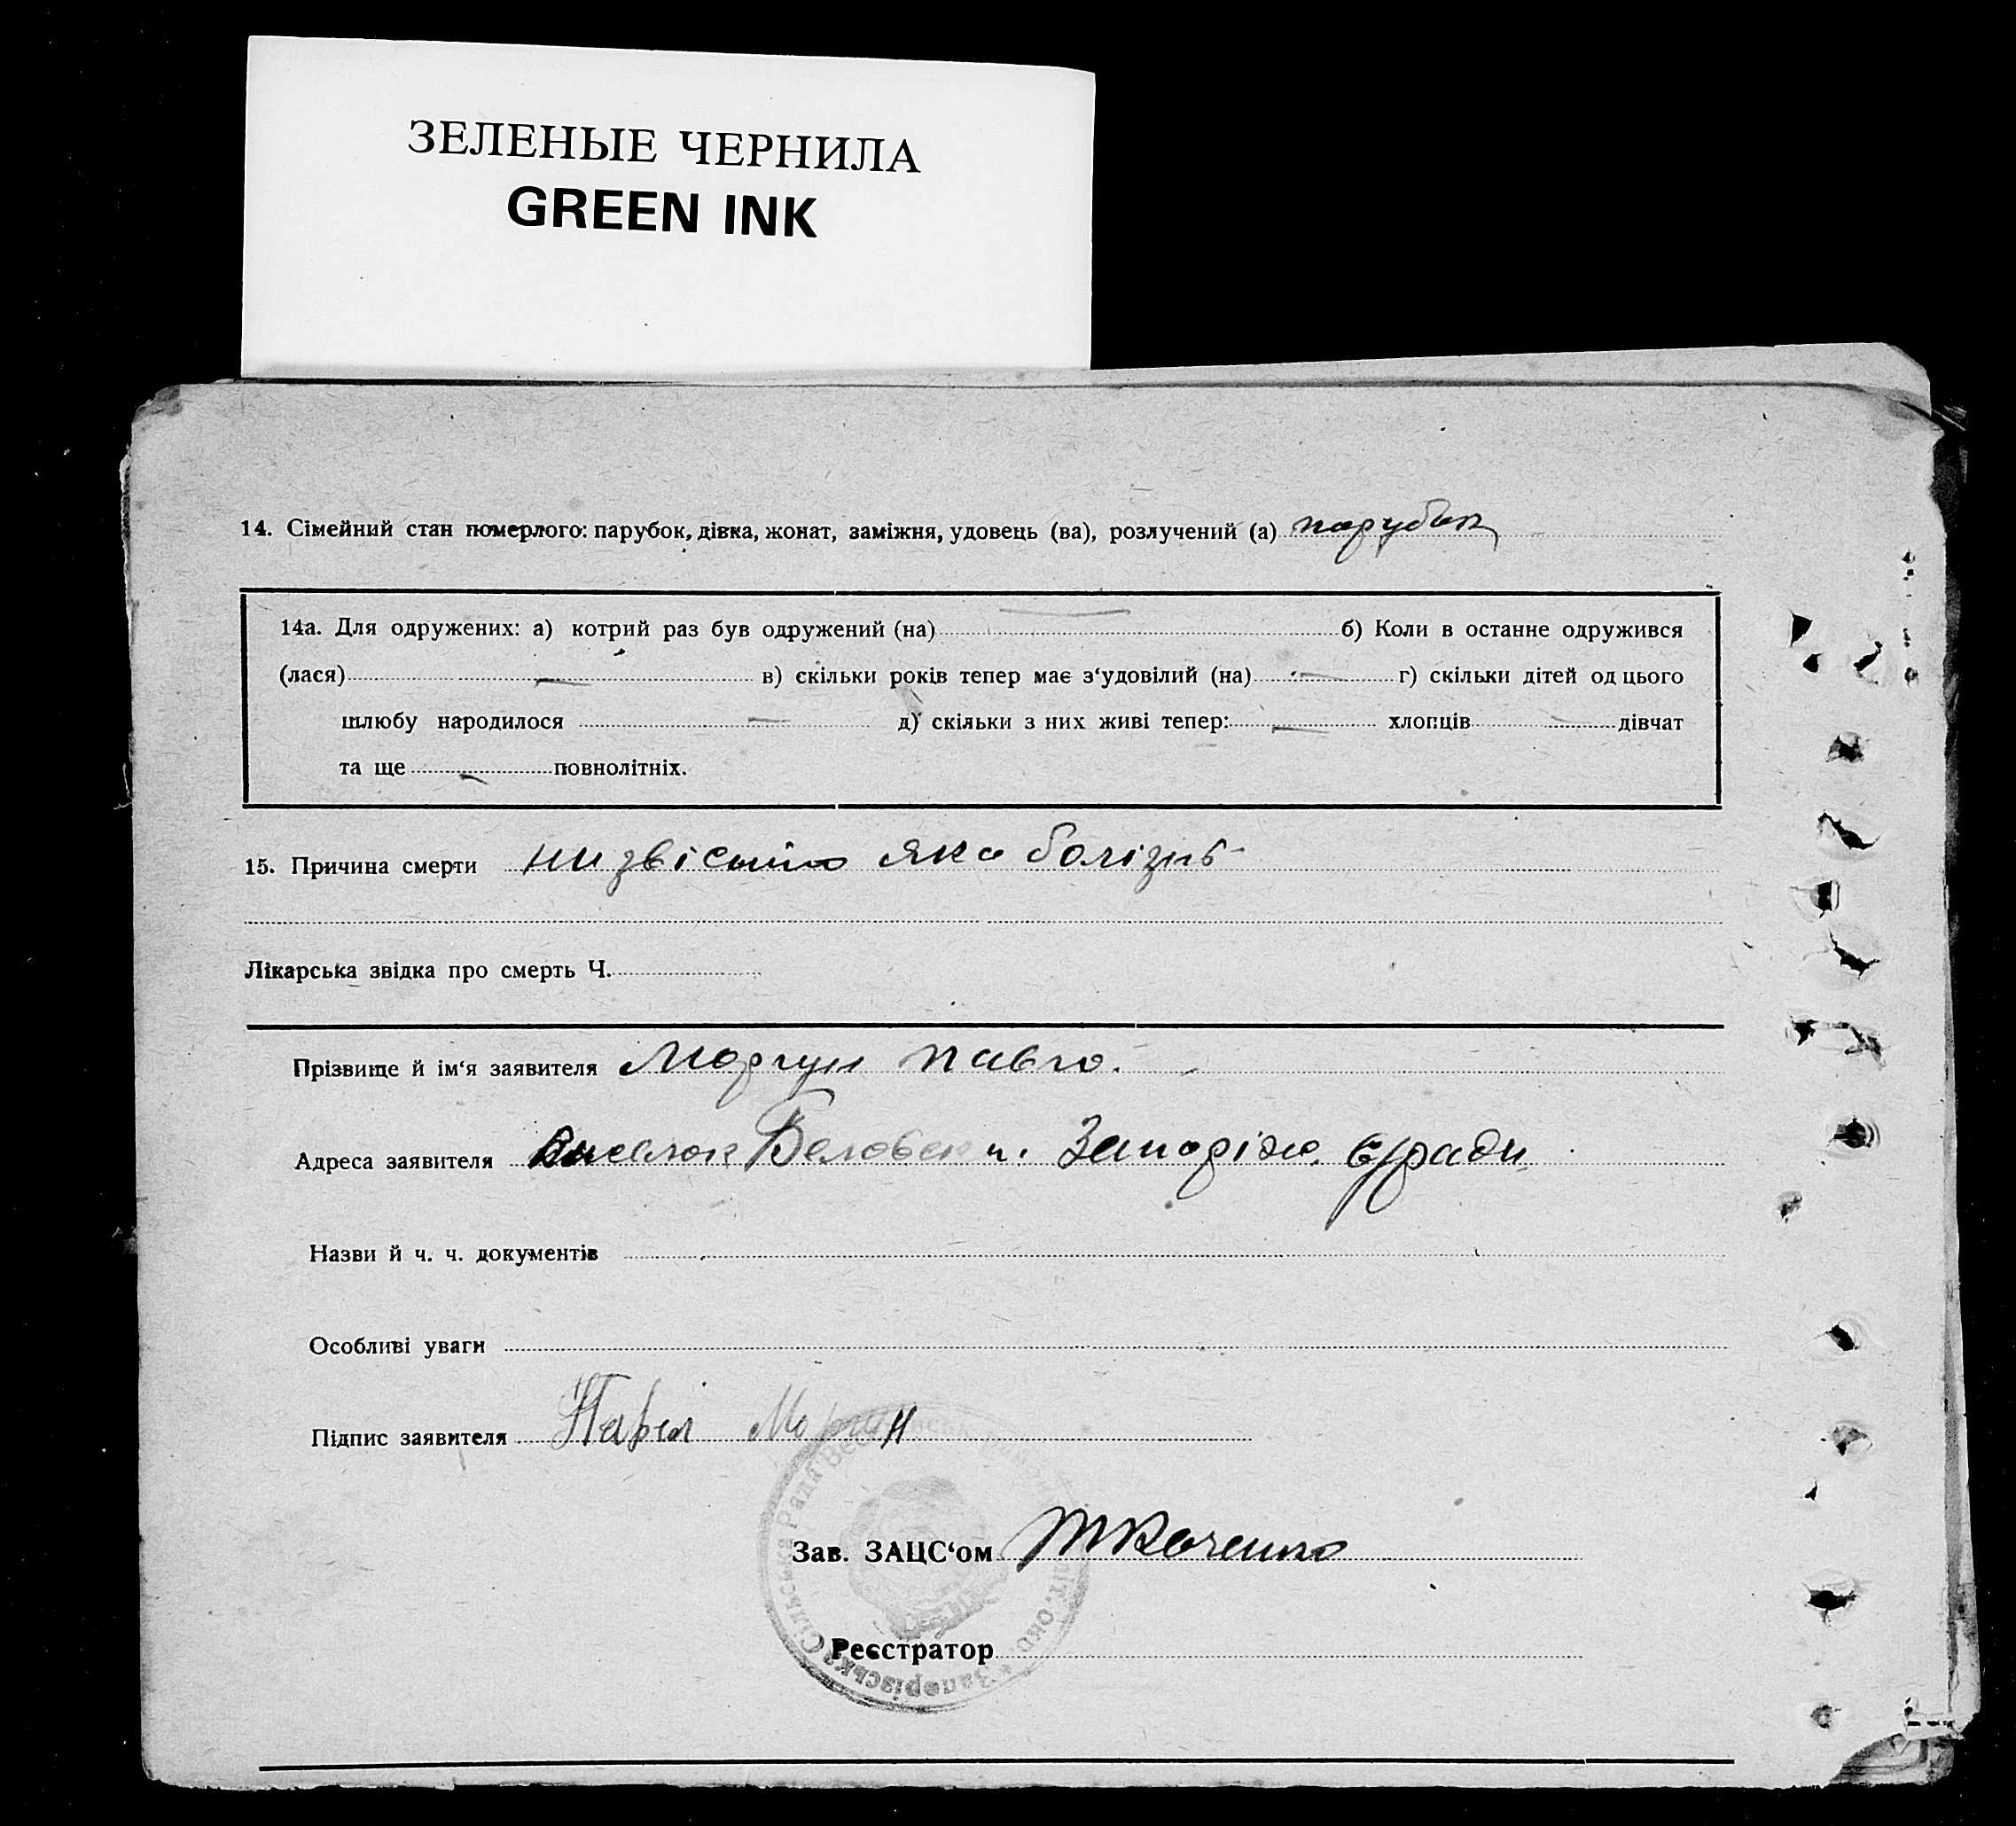 ЗЕЛЕНЫЕ ЧЕРНИЛА
GREEN INK
14. Сімейний стан померлого: парубок, дівка, жонат, заміжня, удовець (ва), розлучений (а) парубок
14а. Для одружених: а) котрий раз був одружений (на) — б) Коли в останне одружився
(лася) — в) скільки років тепер має з‘удовілий (на) — г) скільки дітей од цього
шлюбу народилося — д) скільки з них живі тепер: — хлопців — дівчат
та ще — повнолітніх.
15. Причина смерти ни звісно яка болізнь
Лікарська звідка про смерть Ч.
Прізвище й ім‘я заявителя Моргун Павло.
Адреса заявителя Виселок Запоріж. с/ради
Назви й ч. ч. документів
Особливі уваги
Підпис заявителя Павел Моргун
Зав. ЗАЦС‘ом
Реєстратор
Запорізька Сільська Рада